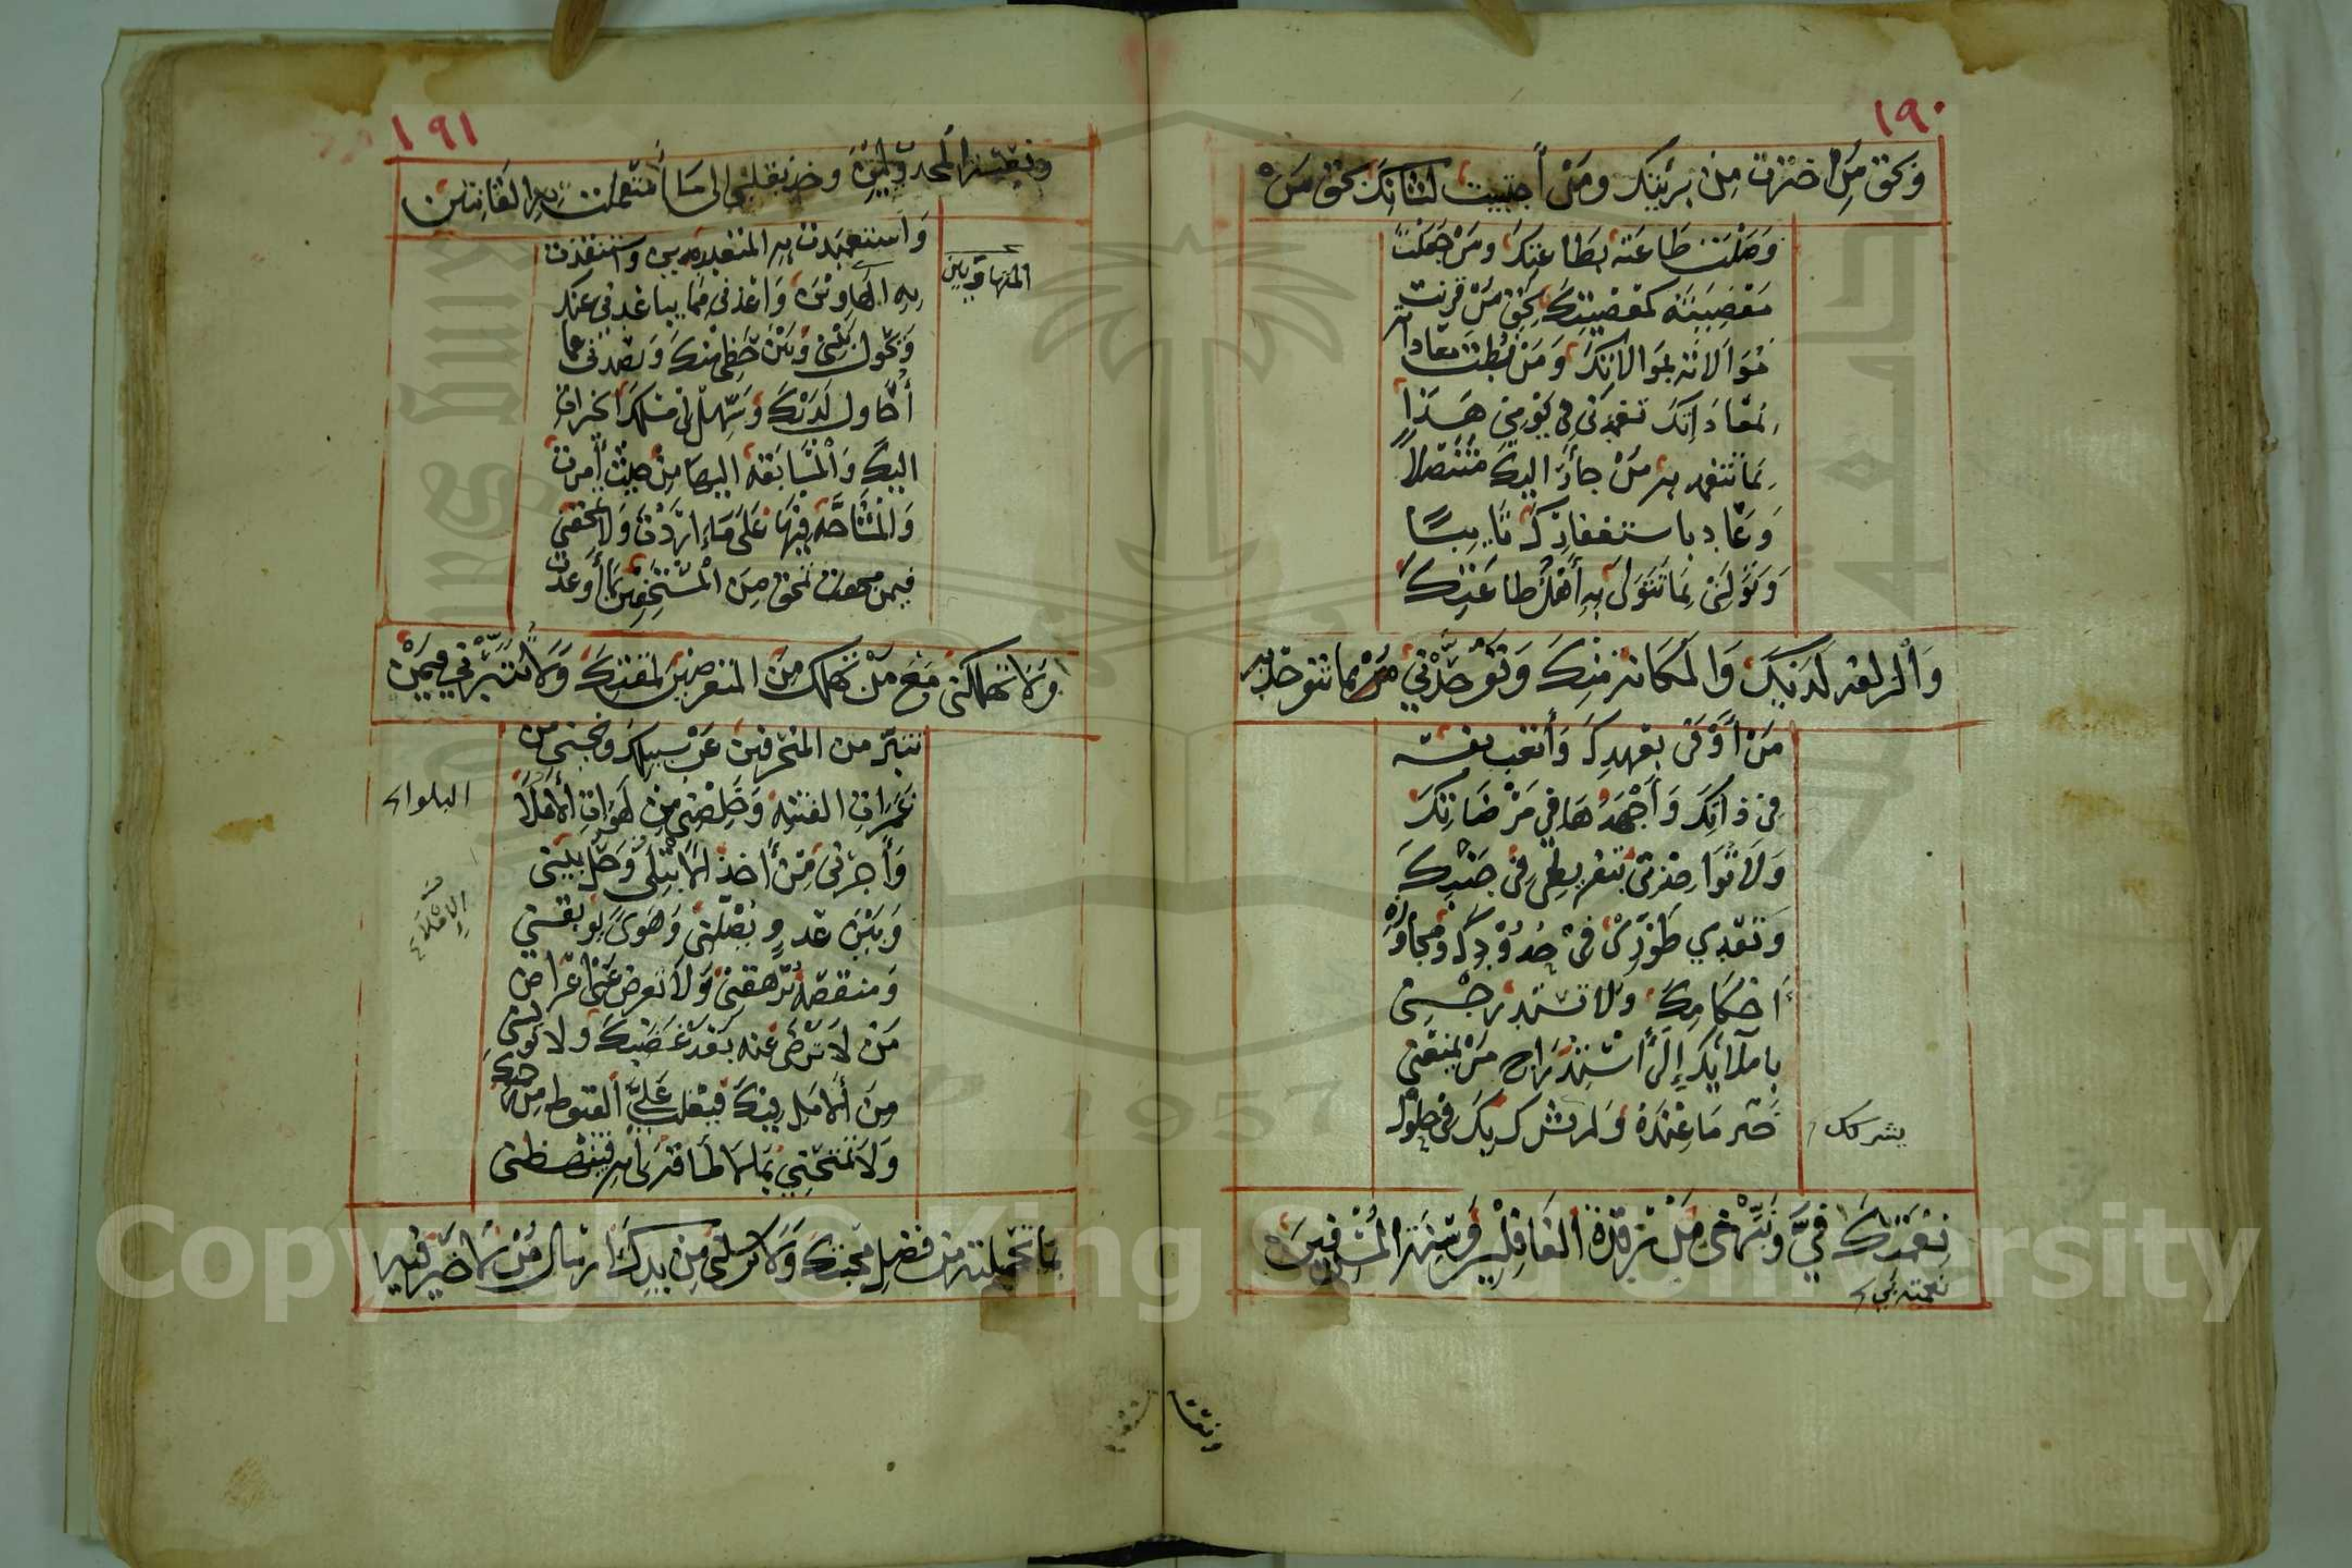 ١٩٠
وبحق من اخترت من بريتك ومن أجتبيت لشانك بحق من
وصلت طاعته بطاعتك ومن جعلت
معصيته كمعصيتك بحق من قرنت
موالاته بموالاتك ومن نطت معاداته
بمعاداتك تغمدني في يومي هذا
بما تتغمد به من جأر اليك متنصلا
وعاد باستغفارك تايبًا
وتولني بما تتولى به أهل طاعتك
والزلفه لديك والمكانه منك وتوحدني بما تتوحد به
من أوفى بعهدك وأتعب نفسه
في ذاتك وأجهدها في مرضاتك
ولا تواخذني بتفريطي في جنبك
وتعدي طوري في حدودك ومجاوزة
أحكامك ولا تستدرجني
باملائك إلي أستدراج من منعني
خير ما عنده ولم يشركك في حلول
يشركك
نعمتك في ونبهني من رقدة الغافلين وسنة المسرفين
نعمته بي
ونعسة
١٩١
ونعسة المخذولين وخذ بقلبي الى ما أستعملت به القانتين
وأستعبدت به المتعبدين واستنقذت
المتهاونين
به المتهاونين وأعذني مما يباعدني عنك
ويحول بيني وبين حظي منك ويصدني عما
أحاول لديك وسهل لي مسلك الخيرات
اليك والمسابقه اليها من حيث أمرت
والمشاحة فيها على ما أردت ولا تمحقني
فيمن تمحق من المستخفين بما أوعدت
ولا تهلكني مع من تهلك من المتعرضين لمقتك ولا تتبرني فيمن
تتبر من المنحرفين عن سبيلك ونجني من
غمرات الفتنة وخلصني من لهوات الأملا
البلوا
وأجرني من أخذ الأبتلى وحل بيني
وبين عدو يضلني وهوى يوبقني
الإملاء
ومنقصه ترهقني ولا تعرض عني أعراض
من لا ترضى عنه بعد غضبك ولا تويسني
من الأمل فيك فيغلب علي القنوط من رحمتك
ولا تمتحني بما لا طاقة لي به فتبهظني
بما تحملنيه من فضل محبتك ولا ترسلني من يدك أرسال من لا خير فيه